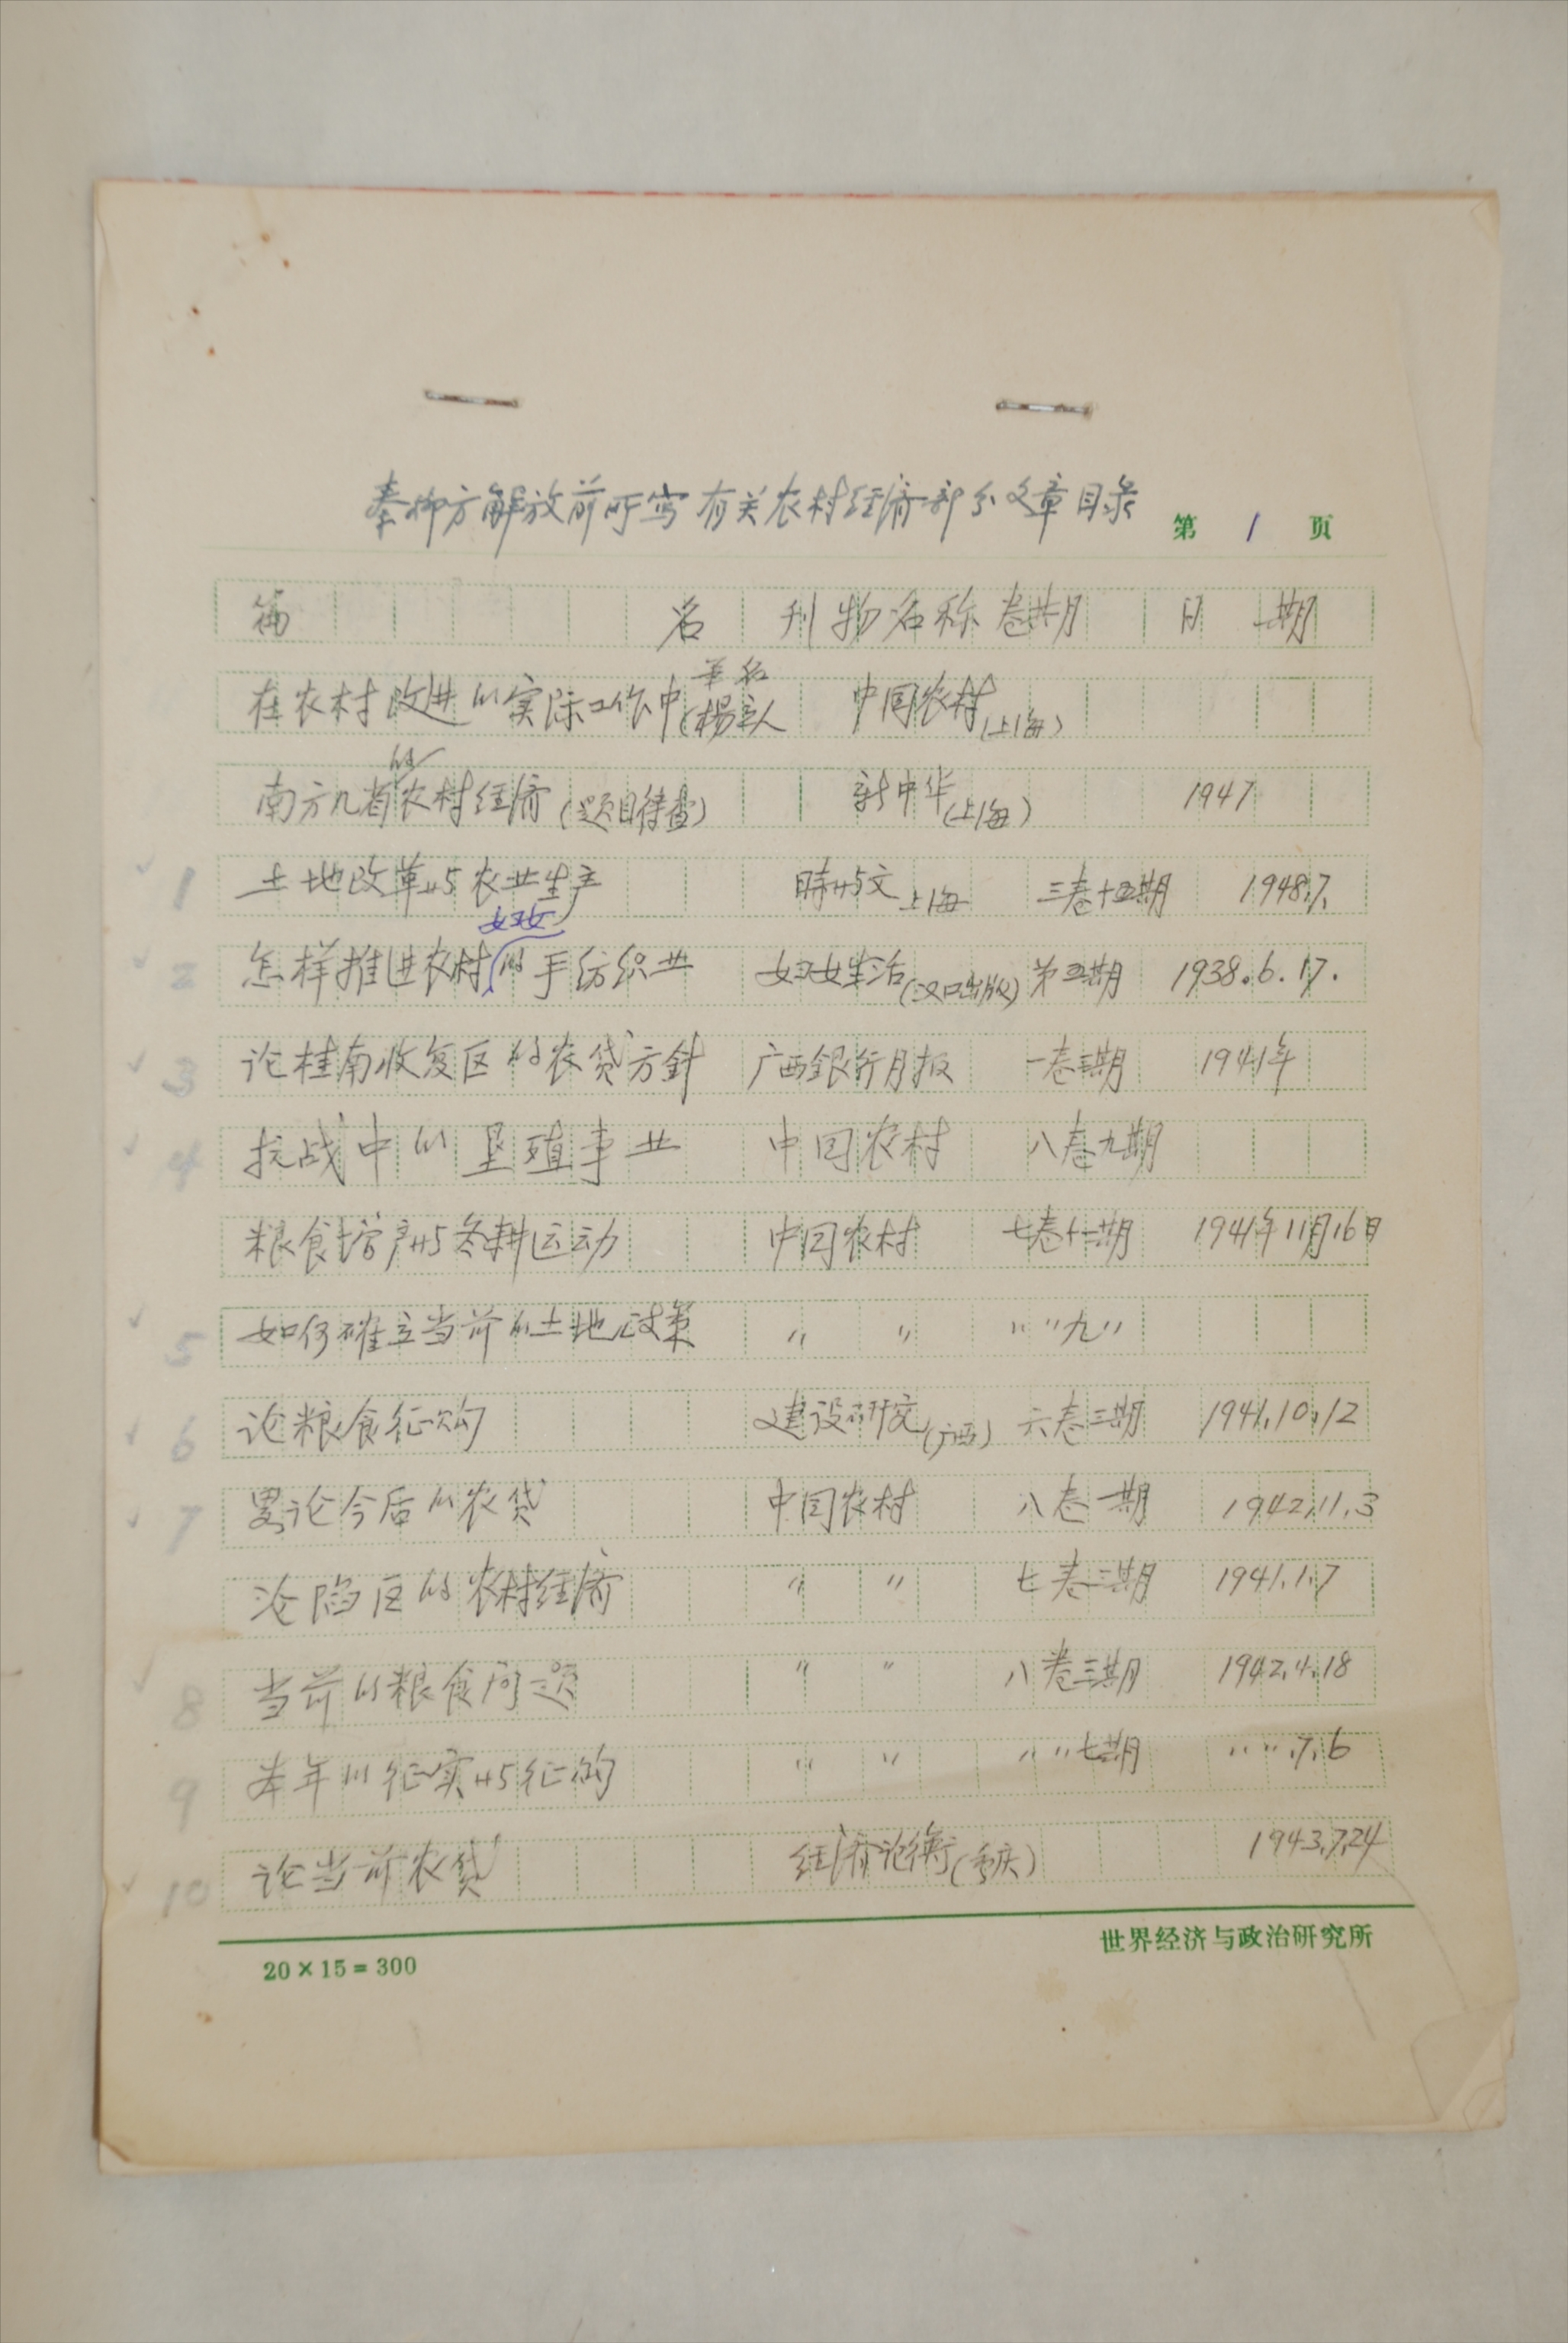 秦柳方解放前所写有关农村经济部分文章目录 第 1 页
篇 名 刊物名称 卷期 日 期
笔名
在农村改进的实际工作中(杨立人 中国农村(上海)
的
南方九省农村经济(题目待查) 新中华(上海) 1947
1 土地改革与农业生产 時与文 上海 三卷十五期 1948.7.
妇女
2 怎样推进农村的手纺织业 妇女生活(汉口出版) 第五期 1938.6.17.
3 论桂南收复区的农贷方針 广西銀行月报 一卷三期 1941年
4 抗战中的垦殖事业 中国农村 八卷九期
粮食增产与冬耕运动 中国农村 七卷十二期 1941年11月16日
5 如何確立当前的土地政策 〃 〃 〃〃九〃
6 论粮食征购 建设研究(广西) 六卷三期 1941.10.12
7 畧论今后的农贷 中国农村 八卷一期 1942.11.3
沦陷区的农村经济 〃 〃 七卷三期 1941.1.7
8 当前的粮食问题 〃 〃 八卷三期 1942.4.18
9 本年的征实与征购 〃 〃 〃〃七期 〃〃.7.6
10 论当前农贷 经济论衡(重庆) 1943.7.24
20×15=300 世界经济与政治研究所